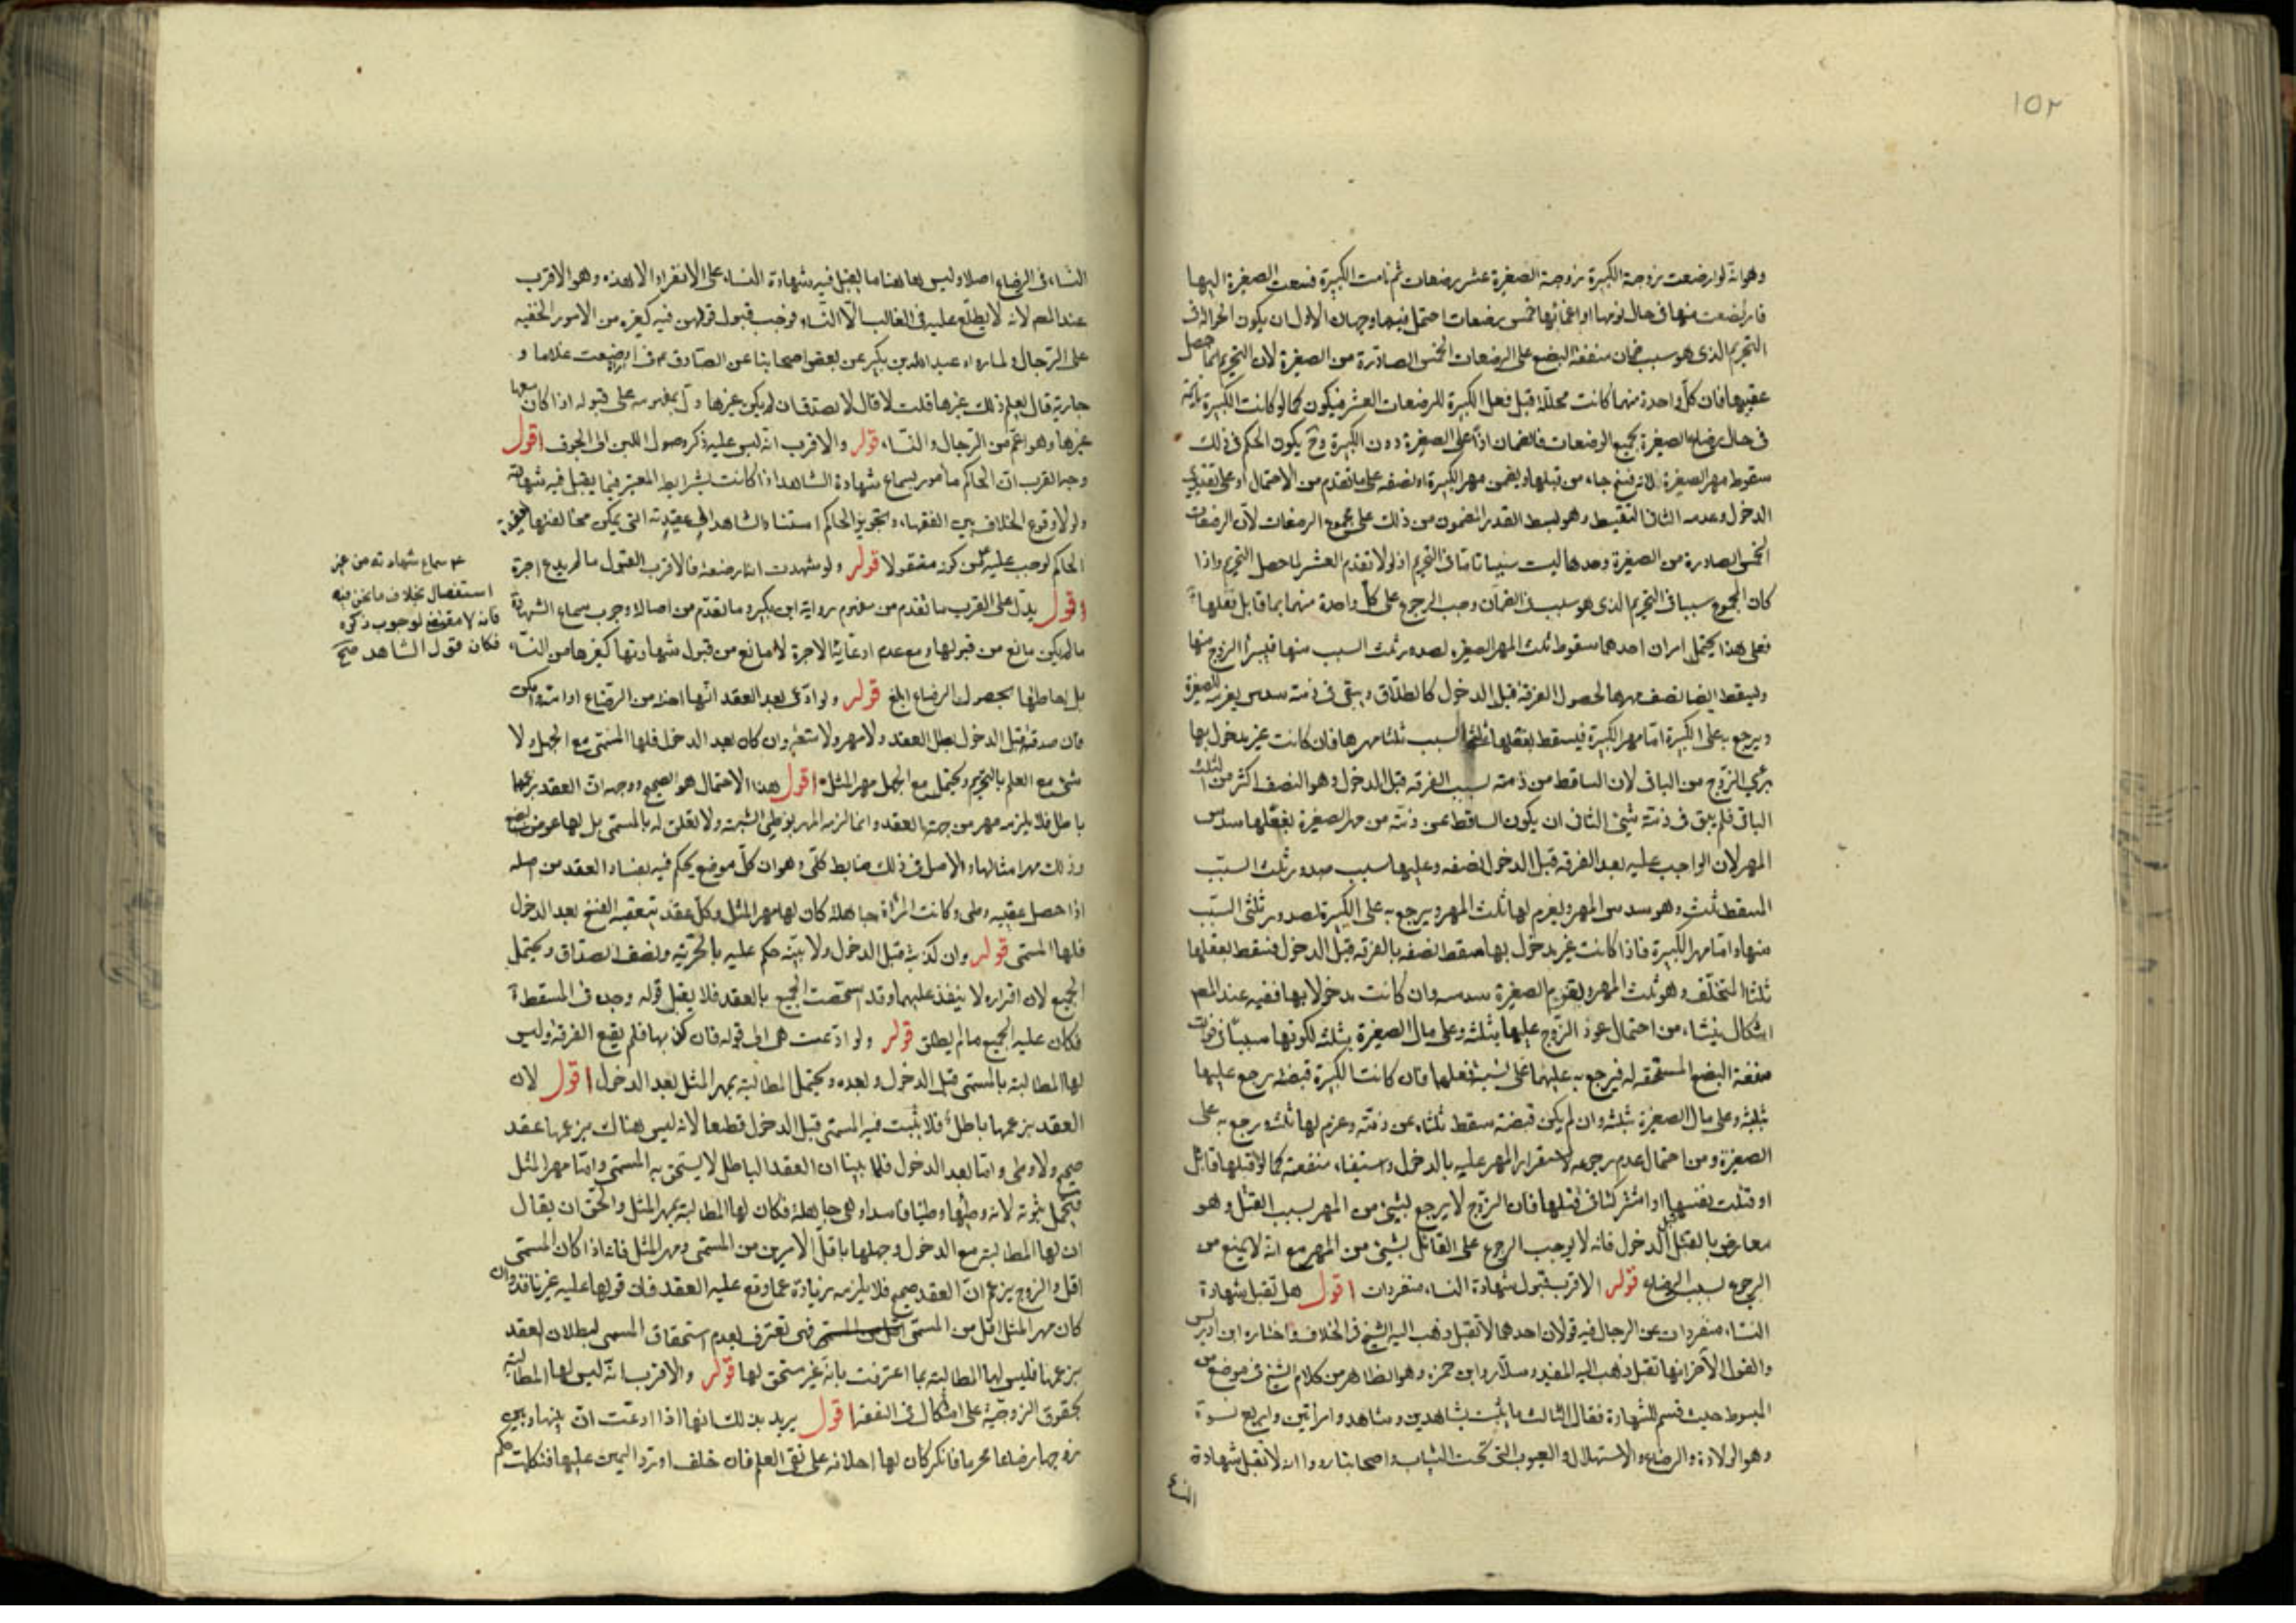 ١٥٢
وهو انه لو ارضعت زوجة الكبيرة زوجة الصغيرة عشر رضعات ثم نامت الكبيرة فسعت الصغيرة اليها
فارتضعت منها في حال نومها او اغمائها خمس رضعات احتمل فيها وجهان الاول ان يكون الحوالة في
التحريم الذي هو سبب ضمان منفعة البضع على الرضعات الخمس الصادرة من الصغيرة لان التحريم انما حصل
عقيبها فان كل واحدة منهما كانت محللة قبل فعل الكبيرة للرضعات العشر فيكون كما لو كانت الكبيرة نائمة
في حال رضاع الصغيرة بجميع الرضعات فالضمان اذا على الصغيرة دون الكبيرة وح يكون الحكم في ذلك
سقوط مهر الصغيرة لانه فسخ جاء من قبلها ويضمن مهر الكبيرة او نصفه على ما تقدم من الاحتمال او على تقديري
الدخول وعدمه الثاني التقسيط وهو بسط القدر المضمون من ذلك على مجموع الرضعات لان الرضعات
الخمس الصادرة من الصغيرة وحدها ليست سببا تاما في التحريم اذ لولا تقدم العشر لما حصل التحريم واذا
كان المجموع سببا في التحريم الذي هو سبب الضمان وجب الرجوع على كل واحدة منهما بما قابل فعلها
فعلى هذا يحتمل امران احدهما سقوط ثلث المهر الصغيرة لصدور ثلث السبب منها فيبرأ الزوج منها
ويسقط ايضا نصف مهرها لحصول الفرقة قبل الدخول كالطلاق ويبقى في ذمته سدس يغرمه للصغيرة
ويرجع به على الكبيرة اما مهر الكبيرة فيسقط بفعلها ثلثا السبب ثلثا مهرها فان كانت غير مدخول بها
برئ الزوج من الباقي لان الساقط من ذمته بسبب الفرقة قبل الدخول وهو النصف اكثر من الثلث
الباقي فلم يبق في ذمته شئ الثاني ان يكون الساقط عن ذمته من مهر الصغيرة بفعلها سدس
المهر لان الواجب عليه بعد الفرقة قبل الدخول نصفه وعليها سبب صدور ثلث السبب
المسقط ثلثه وهو سدس المهر ويغرم لها ثلث المهر ويرجع به على الكبيرة لصدور ثلثي السبب
منها واما مهر الكبيرة فاذا كانت غير مدخول بها سقط نصفه بالفرقة قبل الدخول فسقط بفعلها
ثلثا المتخلف وهو ثلث المهر ويقوم الصغيرة سدسه وان كانت مدخولا بها ففيه عند المص
اشكال ينشاء من احتمال عود الزوج عليها بثلثه وعلى مال الصغيرة بثلثه لكونها سببا في فوات
منفعة البضع المستحقه له فيرجع به عليهما على نسبة فعلهما فان كانت الكبيرة قبضته رجع عليها
بثلثيه وعلى مال الصغيرة بثلثه وان لم يكن قبضته سقط ثلثاه عن ذمته وغرم لها ثلثه ورجع به على
الصغيرة ومن احتمال عدم رجوعه لاستقرار المهر عليه بالدخول واستيفاء منفعته كما لو قتلها قاتل
او قتلت نفسها او اشتركتا في قتلها فان الزوج لا يرجع بشئ من المهر بسبب القتل وهو
معارض بالقتل قبل الدخول فانه لا يوجب الرجوع على القاتل بشئ من المهر مع انه لا يمنع من
الرجوع بسبب الرضاع قوله الاقرب قبول شهادة النساء منفردات اقول هل تقبل شهادة
النساء منفردات عن الرجال فيه قولان احدهما لا تقبل وذهب اليه الشيخ في الخلاف واختاره ابن ادريس
والقول الاخر انها تقبل ذهب اليه المفيد وسلار وابن حمزة وهو الظاهر من كلام الشيخ في موضع من
المبسوط حيث قسم الشهادة فقال الثالث ما يثبت بشاهدين وشاهد وامراتين واربع نسوة
وهو الولادة والرضاع والاستهلال والعيوب التي تحت الثياب واصحابنا رووا انه لا تقبل شهادة
النساء
النساء في الرضاع اصلا وليس ها هنا ما يقبل فيه شهادة النساء على الانفراد الا هذه وهو الاقرب
عند المص لانه لا يطلع عليه في الغالب الا النساء فوجب قبول قولهن فيه كغيره من الامور الخفيه
على الرجال ولما رواه عبد الله بن بكير عن بعض اصحابنا عن الصادق ع في امراة ارضعت غلاما و
جارية قال يعلم ذلك غيرها قلت لا قال لا تصدق ان لم يكن غيرها دل بمفهومه على قبوله اذا كان معها
غيرها وهو اعم من الرجال والنساء قوله والاقرب انه ليس عليه ذكر وصول اللبن الى الجوف اقول
وجه القرب ان الحاكم مأمور بسماع شهادة الشاهد اذا كانت بشرايط المعتبر فيما يقبل فيه شهادته
ولولا وقوع الخلاف بين الفقهاء وتجويز الحاكم استناد الشاهد الى عقيدته التي يمكن مخالفتها لعقيدة
الحاكم لوجب عليه لكن كونه مفقولا قوله ولو شهدت انها ارضعته فالاقرب القبول ما لم يدع اجرة
اقول يدل على القرب ما تقدم من مفهوم رواية ابن بكير وما تقدم من اصالة وجوب سماع الشهادة
ما لم يكن مانع من قبولها ومع عدم ادعائها الاجرة لا مانع من قبول شهادتها كغيرها من النساء
بل احاطتها بحصول الرضاع ابلغ قوله ولو ادعى بعد العقد انها اخته من الرضاع او امه وامكن
فان صدقته قبل الدخول بطل العقد ولا مهر ولا متعة وان كان بعد الدخول فلها المسمى مع الجهل ولا
شئ مع العلم بالتحريم ويحتمل مع الجهل مهر المثل اقول هذا الاحتمال هو الصحيح ووجهه ان العقد بزعمهما
باطل فلا يلزمه مهر من جهة العقد وانما لزمه المهر بوطي الشبهة ولا تعلق له بالمسمى بل لها عوض البضع
وذلك مهر امثالها والاصل في ذلك ضابط كلي وهو ان كل موضع يحكم فيه بفساد العقد من اصله
اذا حصل عقيبه وطي وكانت المرأة جاهلة كان لها مهر المثل وكل عقد يتعقبه الفسخ بعد الدخول
فلها المسمى قوله وان كذبته قبل الدخول ولا بينه حكم عليه بالحرمة ونصف الصداق ويحتمل
الجميع لان اقراره لا ينفذ عليها وقد استحقت الجميع بالعقد فلا يقبل قوله وحده في المسقط
فكان عليه الجميع ما لم يطلق قوله ولو ادعت هي الى قوله فان كذبها فلم يقع الفرقة وليس
لها المطالبة بالمسمى قبل الدخول وبعده ويحتمل المطالبة بمهر المثل بعد الدخول اقول لان
العقد بزعمها باطل فلا يثبت فيه المسمى قبل الدخول قطعا لانه ليس هناك بزعمها عقد
صحيح ولا وطي واما بعد الدخول فلما بينا ان العقد الباطل لا يستحق به المسمى واما مهر المثل
فيحتمل ثبوته لانه وطئها وطئا فاسدا وهي جاهلة فكان لها المطالبة بمهر المثل والحق ان يقال
ان لها المطالبة مع الدخول وجهلها باقل الامرين من المسمى ومهر المثل فانه اذا كان المسمى
اقل والزوج يزعم ان العقد صحيح فلا يلزمه زيادة عما وقع عليه العقد فان قولها عليه غير نافذ وان
كان مهر المثل اقل من المسمى فهي تعترف بعدم استحقاق المسمى لبطلان العقد
بزعمها فليس لها المطالبة بما اعترفت بانه غير مستحق لها قوله والاقرب انه ليس لها المطالبة
بحقوق الزوجية على اشكال في النفقة اقول يريد بذلك انها اذا ادعت ان بينها وبين
زوجها رضاعا محرما فانكر كان لها احلافه على نفي العلم فان حلف او رد اليمين عليها فنكلت حكم
سماع شهادته من غير
استفصال بخلاف ما نحن فيه
فانه لا مقتضى لوجوب ذكره
فكان قول الشاهد صح